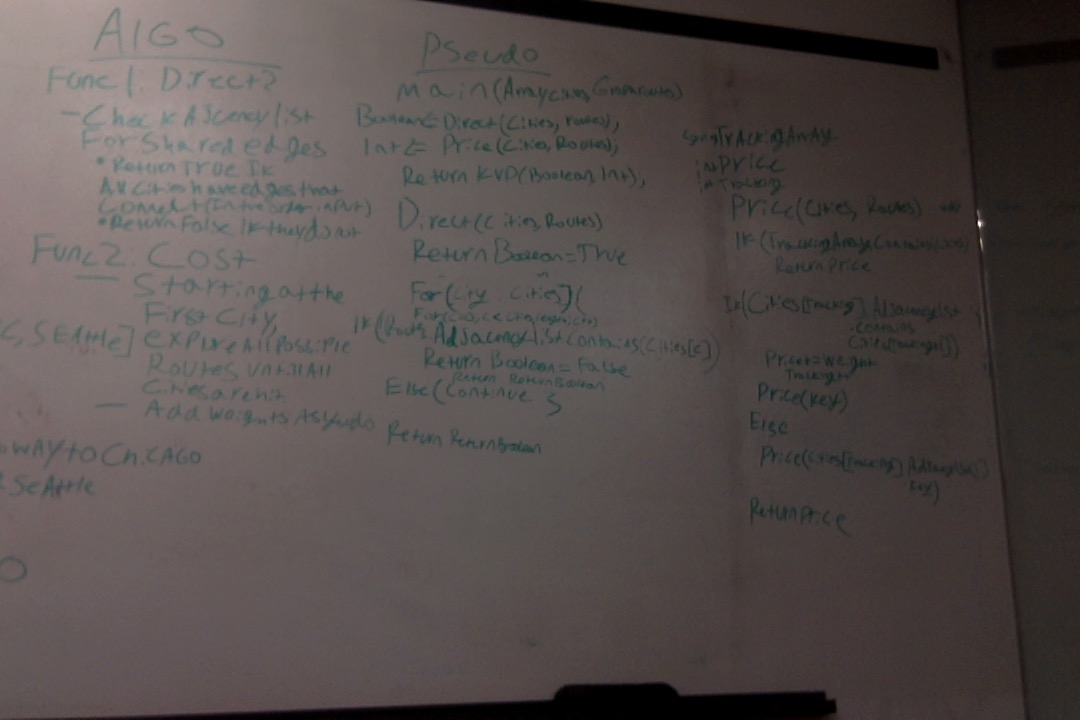 AlGO
Func 1. Direct?
- Check AJcency list
For Shared edges
• Return TRUE IF
All Cities have edges that
Connect (In the order input)
• Return False IF they do not
Func 2: Cost
- Starting at the
First City,
C, SEAttle] explore All Possible
Routes until All
Cities are hit
- Add weights As you do
WAY to ChiCAGO
SeAttle
O
PSeudo
main(Array Cities,
Boolean = Direct(Cities, routes),
Int = Price(Cities, Routes),
Return KVP(Boolean, Int),
Direct(Cities, Routes)
Return Boolean = True
For(City : Cities)(
IF(Route AdJacencylist contains(Cities[c])
Return Boolean = False
Return ReturnBoolean
Else(Continue }
Return Return Boolean
TrAcking ArrAy
int Price
int Tracking
Price(Cities, Routes)
IF(TrackingArray.Contains
Return Price
IF(Cities[tracking].AdJacencylist
.contains
Price += weight
Tracking++
Price(key)
Else
Price(Cities[tracking].
key)
Return Price